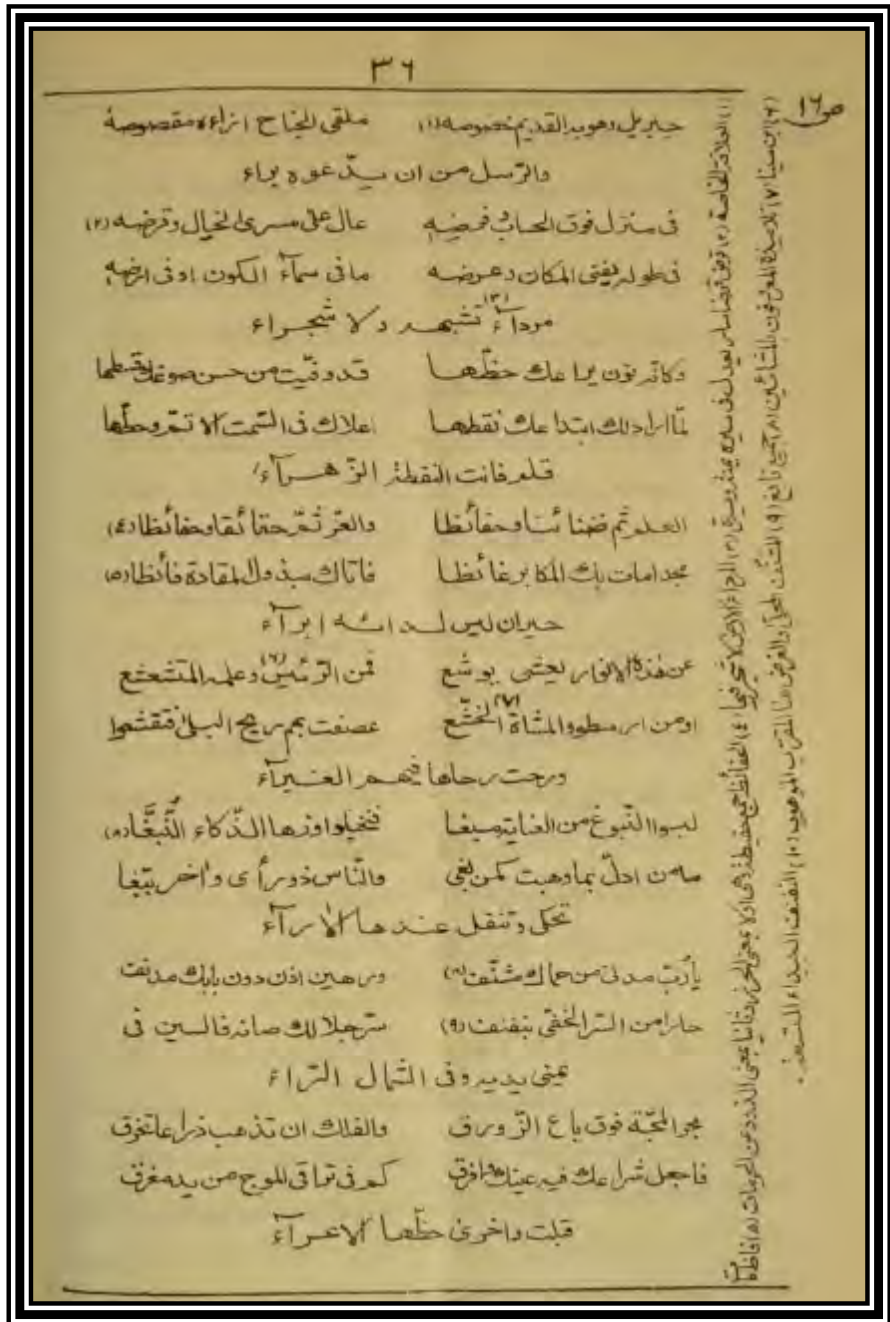 ٣٦
ص١٦
جبريل وهو به القديم خصوصه (١) ملقى الجناح ازاءه مقصوصة
والرّسل من ان يدّعوه براء
فى منزل فوق الحساب وفرضِهِ عال على مسرى الخيال وقرضه (٢)
فى طوله يفنى المكان وعرضه ما فى سمآء الكون او فى ارضهِ
مردآء (٣) تشبهه ولا شجراء
وكانه نون يراعك حظّها قد وفّيت من حسن صوغك قسطها
لمّا اراد لك ابتداعك نقطها اعلاك فى السّمت الاتمّ وحطّها
قلم فانت النقطة الزّهرآء
العلم ثم ضنائنا وحفائظا والعزّ ثمّ حقائقا وحفائظا (٤)
مجد امات بك المكابر غائظا فاتاك مبذول المقادة فائظا (٥)
حيران ليس لدائه ابرآء
عن هذه الانوار يعشى يوشع فمن الرّئيس (٦) وعلمه المتشعشع
او من ارسطو والمشاة (٧) الخشّع عصفت بهم ريح البلىٰ فتقشعوا
ورحت رحاها فيهم الغبرآء
لبسوا النّبوغ من العناية مبغا فتخيلوا وزها الذّكاء النُّبَّغَا (٨)
ما من ادلّ بما وهبت كمن بغى والنّاس ذو رأى وٰاخر ببّغا
تحكى وتنقل عندها الاٰرآء
يا ربّ مدنىً من حماك مشنّف (٩) ورهين اذن دون بابك مدنف
حارا من السّر الخفّى بنفنف سرّ جلالك صانه فالسين فى
يمنى يديه وفى الشمال الرّاء
بحر المحبّة فوق باع الزّورق والفلك ان تذهب ذراعا تغرق
فاجعل شراعك فيه عينك وافرق كم فى تواقى الموج من يده مغرق
قبلت واخرىٰ حظّها الاعرآء
(١) العلاقة الخاصة (٢) قرض قرضا سار يعدل فى سيره يمنة ويسرة (٣) المرداء الارض لا شجر فيها (٤) الحفائظ جمع حفيظة وهى اولا بمعنى الحرز وثانيا بمعنى الذود عن الحرمات (٥) فاظ مات
(٦) ابن سينا (٧) تلاميذه المعروفون بالمشائين (٨) جمع نابغ (٩) المشنّف المحلّى والغرض هنا المقرّب الموهوب (١٠) النفنف البيداء المتسعة.